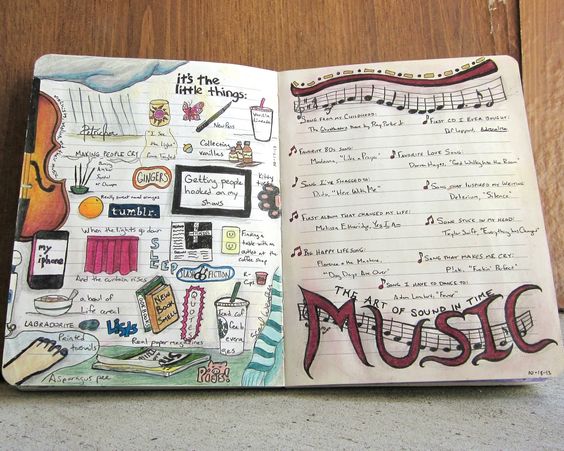 it's the
little things:
Petrichor
"I See
the light"
from Tangled
New Pens
Vanilla
Collecting
vanillas
MAKING PEOPLE CRY
GINGERS
Getting people
hooked on my
shows
Kitty
Really sweet navel oranges
tumblr.
When the lights go down
my
iphone
And the curtain rises
SLEEP
Finding a
table with an
outlet at the
coffee shop
FLASH FICTION
a bowl of
Life cereal
New
Book
Smell
QUOTES
LABRADORITE
Lists
Painted
toenails
Real paper magazines
Asparagus pee
Pigs!
10-17-13
SONG FROM MY CHILDHOOD:
The Ghostbusters theme by Ray Parker Jr.
FIRST CD I EVER BOUGHT:
Def Leppard, Adrenalize
FAVORITE 80s SONG:
Madonna, "Like a Prayer"
FAVORITE LOVE SONG:
Darren Hayes, "God Walking Into the Room"
SONG I'VE SMASHED TO:
Dido, "Here With Me"
SONG THAT INSPIRED MY WRITING
Delerium, "Silence"
FIRST ALBUM THAT CHANGED MY LIFE:
Melissa Etheridge, Yes I Am
SONG STUCK IN MY HEAD:
Taylor Swift, "Everything Has Changed"
BIG HAPPY LIFE SONG:
Florence + the Machine,
"Dog Days Are Over"
SONG THAT MAKES ME CRY:
P!nk, "Fuckin' Perfect"
SONG I HAVE TO DANCE TO:
Adam Lambert, "Fever"
THE ART OF SOUND IN TIME
MUSIC
10-18-13